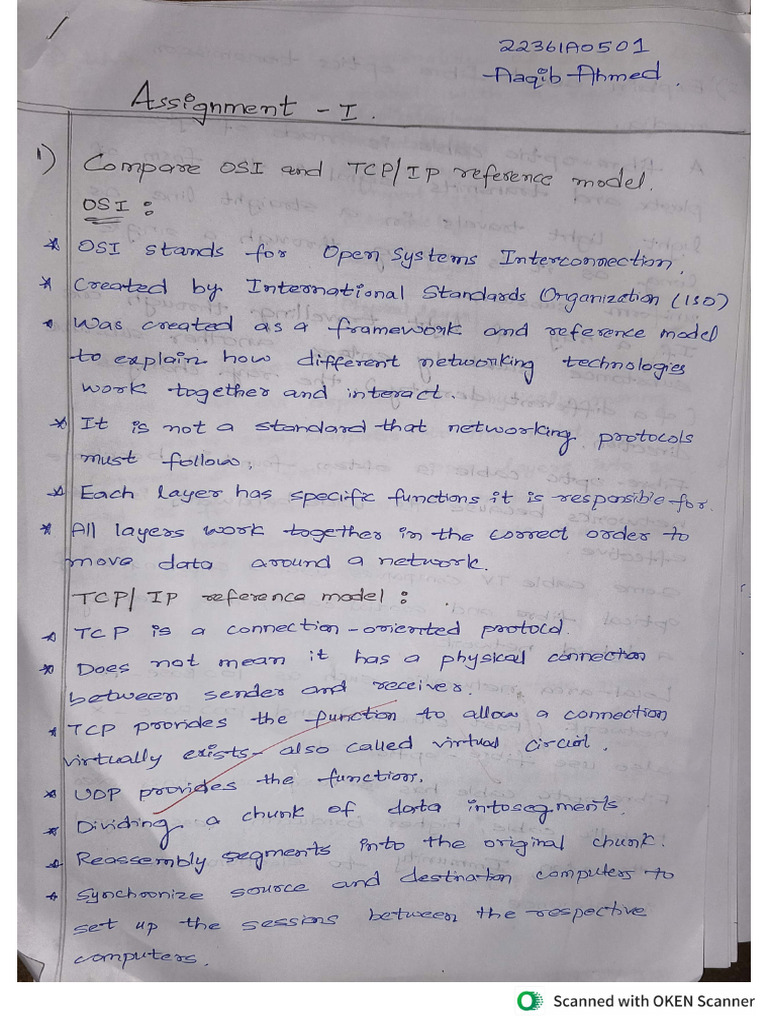 22361A0501
Aaqib Ahmed.
Assignment - I.
1) Compare OSI and TCP/IP reference model.
OSI :
* OSI stands for Open Systems Interconnection.
* Created by International Standards Organization (ISO)
* Was created as a framework and reference model
to explain how different networking technologies
work together and interact.
* It is not a standard that networking protocols
must follow.
* Each layer has specific functions it is responsible for.
* All layers work together in the correct order to
move data around a network.
TCP/IP reference model :
* TCP is a connection-oriented protocol.
* Does not mean it has a physical connection
between sender and receiver.
* TCP provides the function to allow a connection
virtually exists - also called virtual circuit.
* UDP provides the functions.
* Dividing a chunk of data into segments.
* Reassembly segments into the original chunk.
* Synchronize source and destination computers to
set up the sessions between the respective
computers.
Scanned with OKEN Scanner